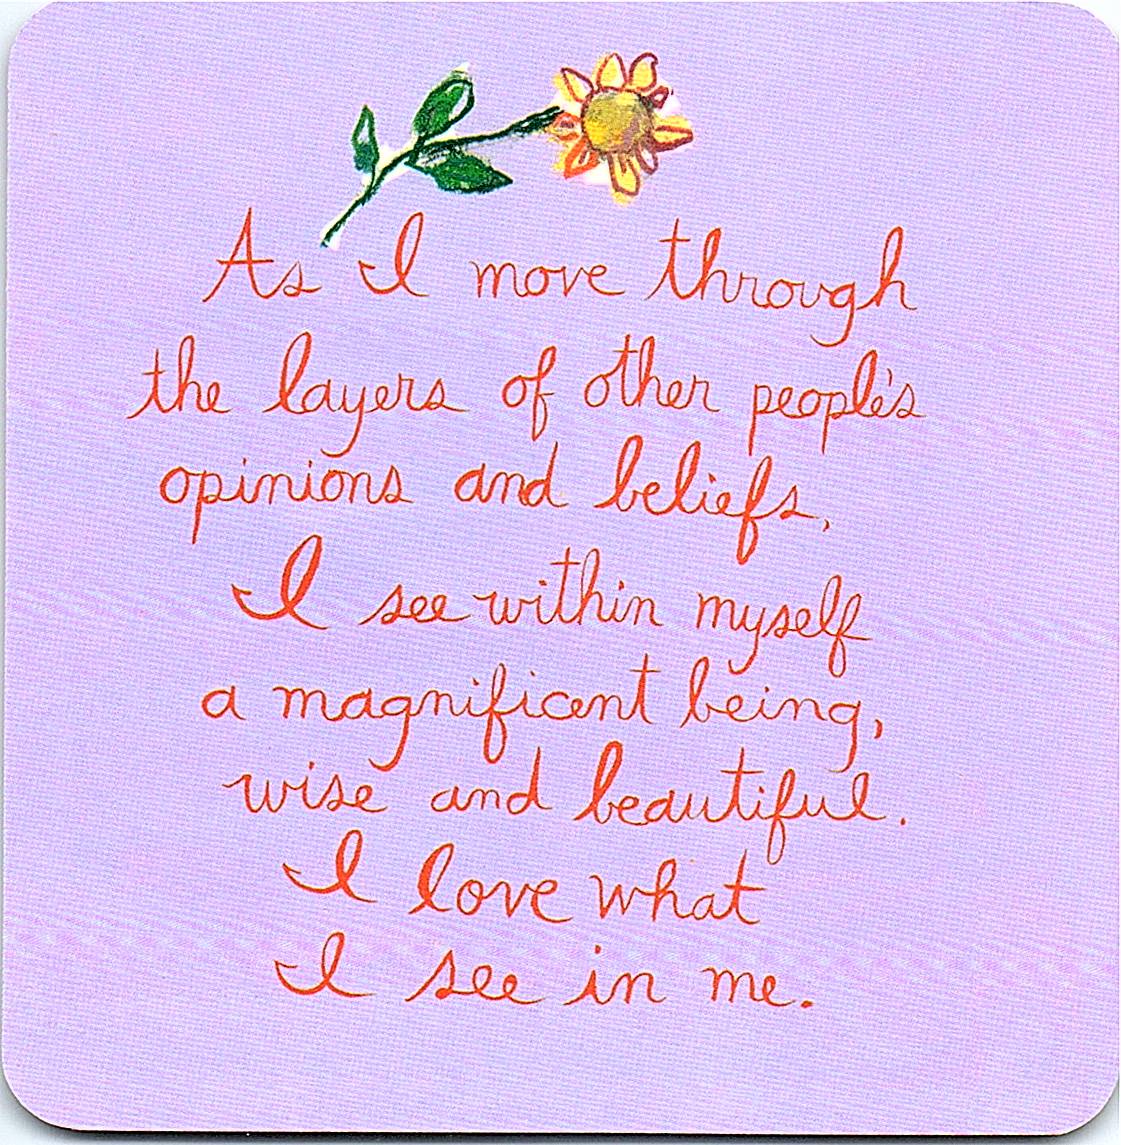 As I move through
the layers of other people's
opinions and beliefs,
I see within myself
a magnificent being,
wise and beautiful.
I love what
I see in me.